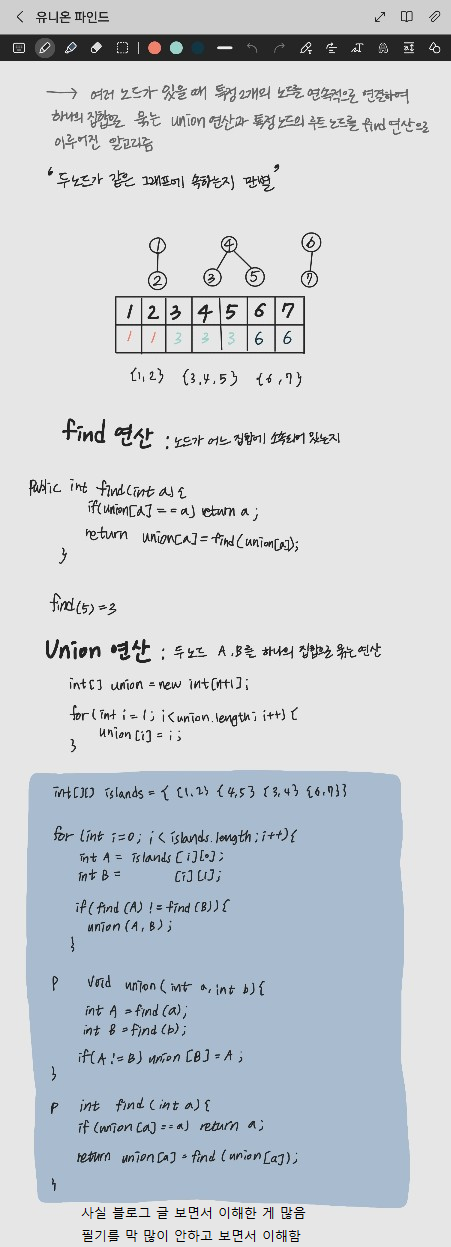 유니온 파인드
여러 노드가 있을 때 특정 2개의 노드를 연속적으로 연결하여
하나의 집합으로 묶는 union 연산과 특정 노드의 루트 노드를 find 연산으로
이루어진 알고리즘
“두 노드가 같은 그래프에 속하는지 판별”
1 4 6
2 3 5 7
1 2 3 4 5 6 7
1 1 3 3 3 6 6
{1,2} {3,4,5} {6,7}
find 연산 : 노드가 어느 집합에 소속되어 있는지
Public int find(int a) {
if(union[a] == a) return a;
return union[a] = find(union[a]);
}
find(5) = 3
Union 연산 : 두 노드 A, B를 하나의 집합으로 묶는 연산
int[] union = new int[n+1];
for(int i = 1; i < union.length; i++) {
union[i] = i;
}
int[][] islands = { {1,2} {4,5} {3,4} {6,7}}
for (int i=0; i < islands.length; i++){
int A = islands[i][0];
int B = [i][1];
if(find(A) != find(B)){
union(A,B);
}
P void union(int a, int b){
int A = find(a);
int B = find(b);
if(A != B) union[B] = A;
}
P int find(int a){
if(union[a]==a) return a;
return union[a] = find(union[a]);
}
사실 블로그 글 보면서 이해한 게 많음
필기를 막 많이 안하고 보면서 이해함